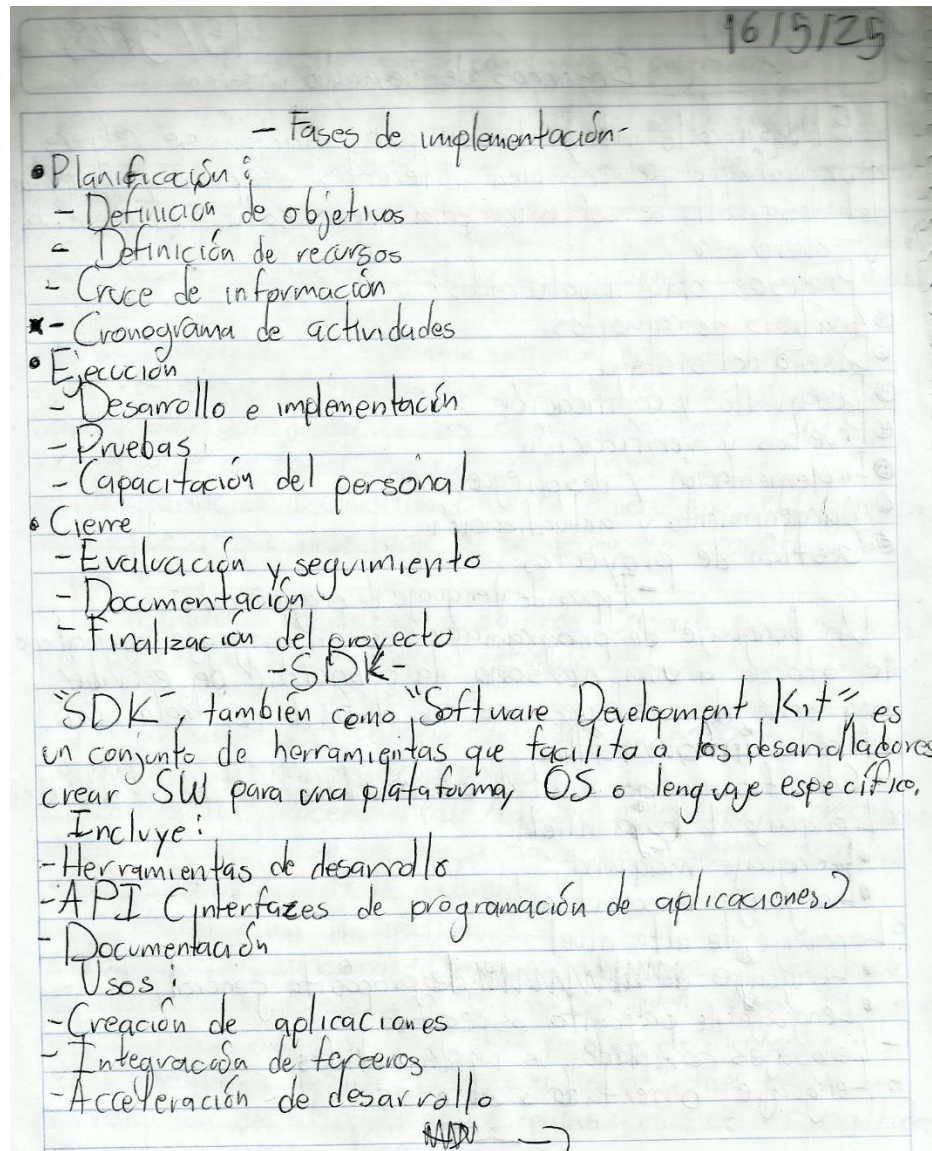 16/5/25
- Fases de implementación-
• Planificación:
- Definición de objetivos
- Definición de recursos
- Cruce de información
x- Cronograma de actividades
• Ejecución
- Desarrollo e implementación
- Pruebas
- Capacitación del personal
• Cierre
- Evaluación y seguimiento
- Documentación
- Finalización del proyecto
-SDK-
"SDK", también como "Software Development Kit", es
un conjunto de herramientas que facilita a los desarrolladores
crear SW para una plataforma, OS o lenguaje específico.
Incluye:
-Herramientas de desarrollo
-API (interfazes de programación de aplicaciones)
- Documentación
Usos:
-Creación de aplicaciones
- Integración de terceros
-Acceleración de desarrollo